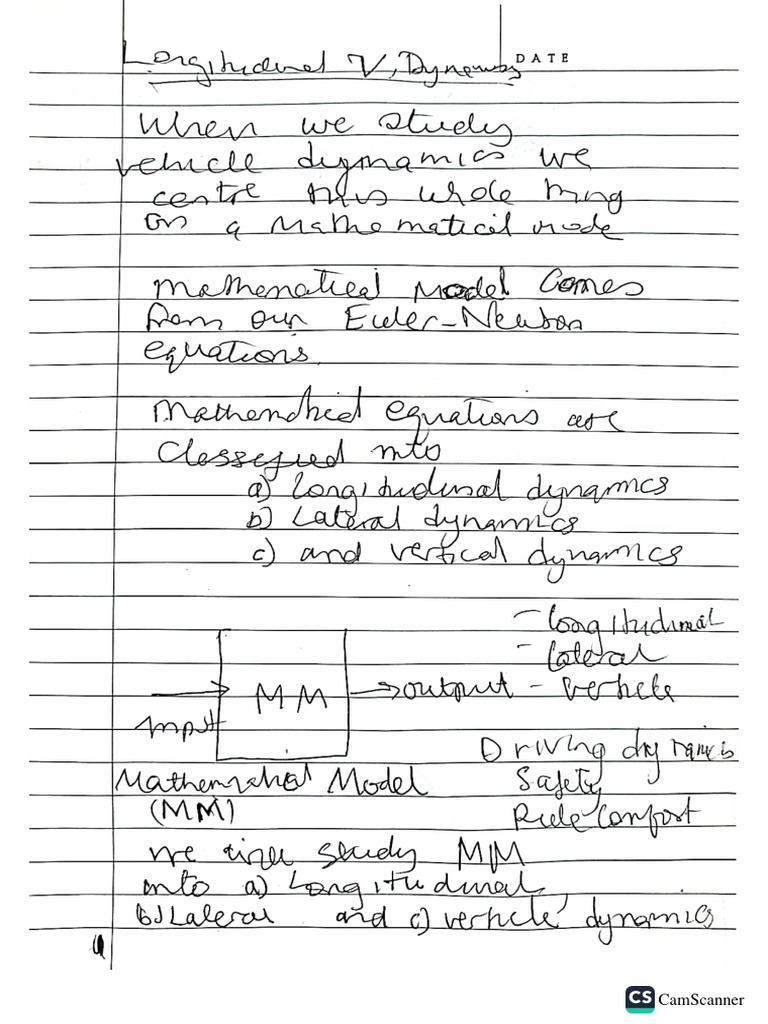 Longitudinal V, Dynamics
DATE
When we study
vehicle dynamics we
centre this whole thing
on a Mathematical mode
Mathematical Model Comes
from our Euler-Newton
equations.
Mathematical equations are
Classified into
a) longitudinal dynamics
b) Lateral dynamics
c) and vertical dynamics
- longitudinal
- lateral
MM → output - verticle
Input
Driving dynamics
Mathematical Model Safety
(MM) Ride Comfort
we study MM
into a) Longitudinal,
b) Lateral and c) verticle dynamics
CS CamScanner